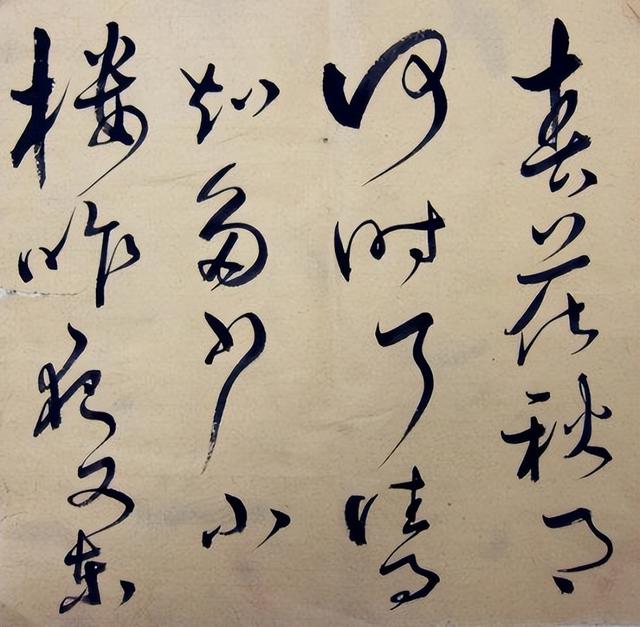 春花秋月
何时了往事
知多少小
楼昨夜又东